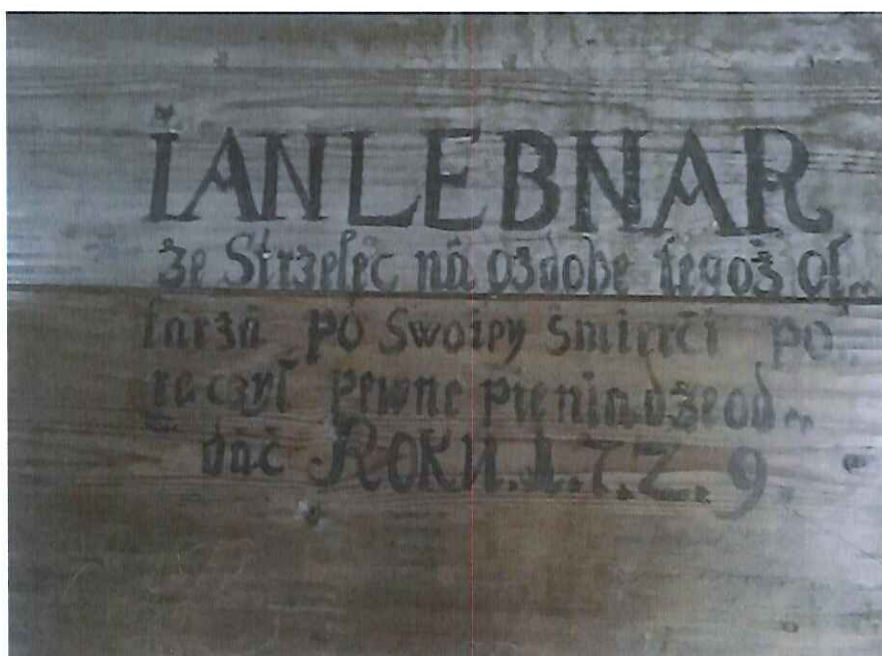 IANLEBNAR
ze Strzelec ná ozdobe tegoż ol~
tarzá po Swoiey śmierći po
ruczył pewne pieniądze od~
dáć ROKU.1.7.Z.9.